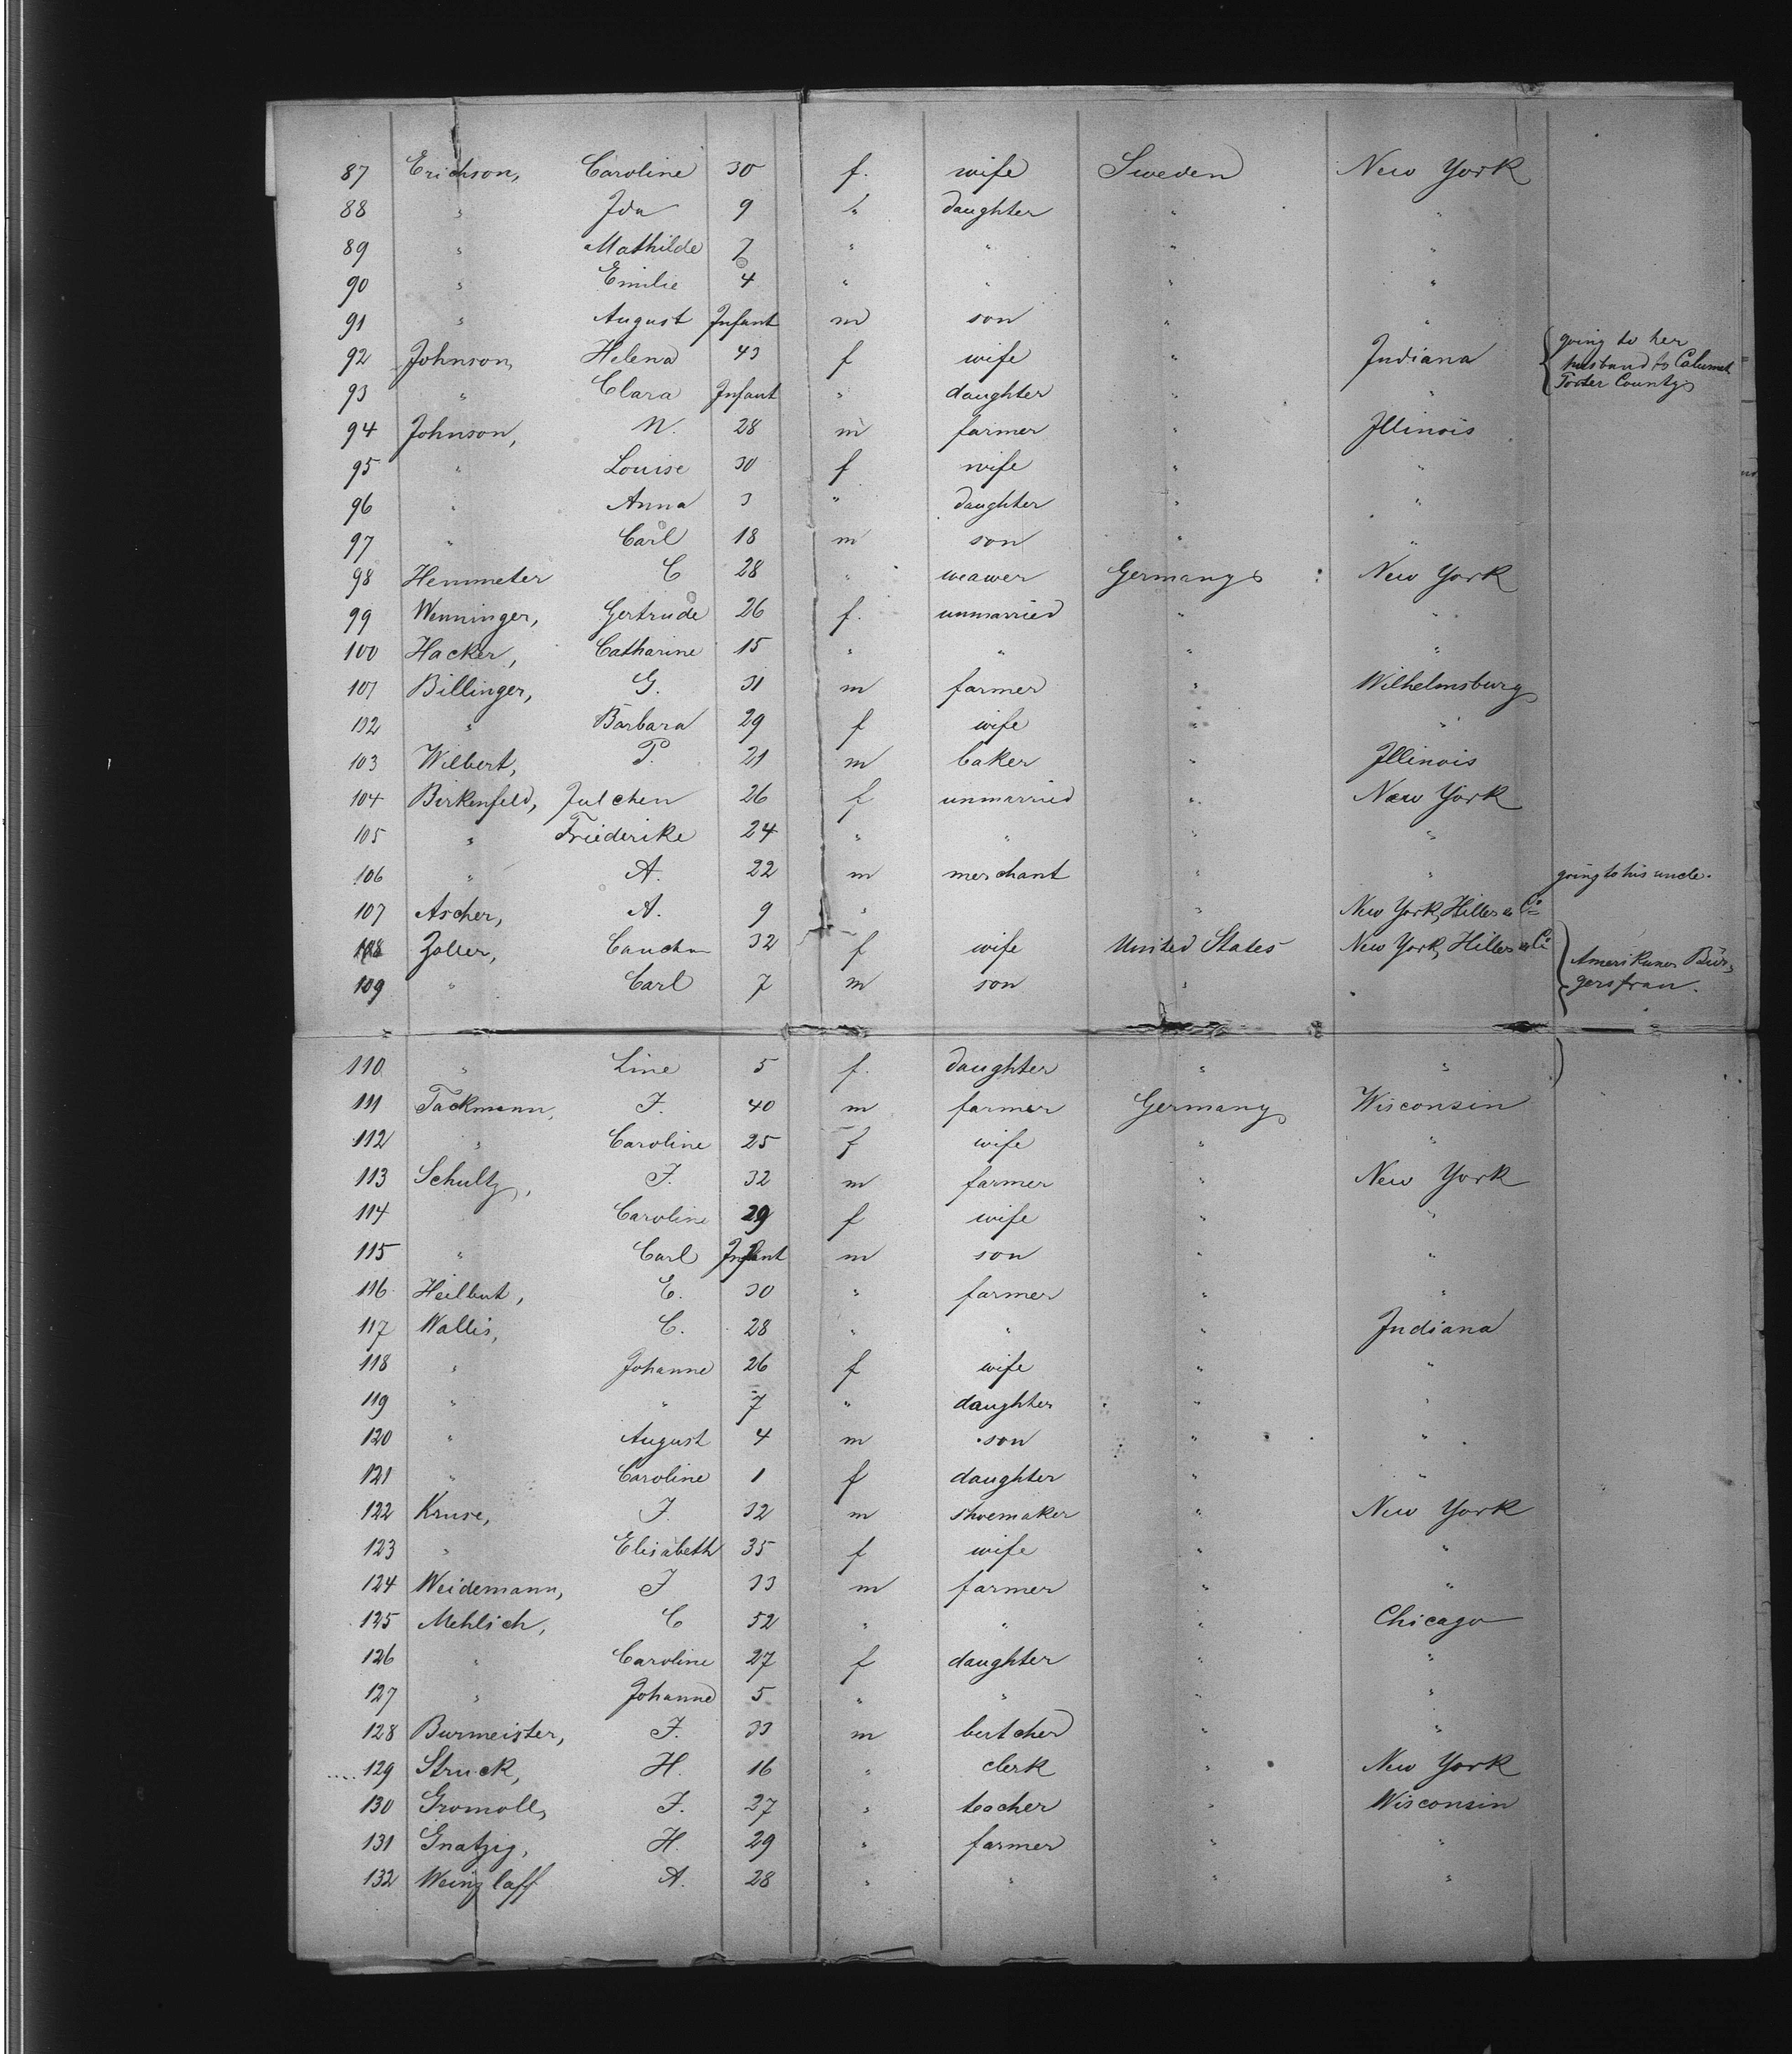 87 Erichson, Caroline 30 f. wife Sweden New York
88 " Ida 9 " daughter " "
89 " Mathilde 7 " " " "
90 " Emilie 4 " " " "
91 " August Infant m son " "
92 Johnson, Helena 43 f wife " Indiana going to her
husband to Calumet
93 " Clara Infant " daughter " " Porter County
94 Johnson, N. 28 m farmer " Illinois
95 " Louise 30 f wife " "
96 " Anna 3 " daughter " "
97 " Carl 18 m son " "
98 Hemmeter C 28 " weawer Germany New York
99 Wenninger, Gertrude 26 f. unmarried " "
100 Hacker, Catharine 15 " " " "
101 Billinger, G. 31 m farmer " Wilhelmsburg
102 " Barbara 29 f wife " "
103 Wilbert, P. 21 m baker " Illinois
104 Birkenfeld, Julchen 26 f unmarried " New York
105 " Friederike 24 " " " "
106 " A. 22 m merchant " " going to his uncle.
107 Ascher, A. 9 " " New York, Hiller & Co
108 Zoller, 32 f wife United States New York, Hiller & Co
109 " Carl 7 m son " Amerikaner Bür-
gersfrau.
110 " Line 5 f. daughter " "
111 Tackmann, J. 40 m farmer Germany Wisconsin
112 " Caroline 25 f wife " "
113 Schultz, J. 32 m farmer " New York
114 Caroline 29 f wife " "
115 " Carl Infant m son " "
116 Heilbut, E. 30 " farmer " "
117 Wallis, C. 28 " " " Indiana
118 " Johanne 26 f wife " "
119 " " 7 " daughter " "
120 " August 4 m son " "
121 " Caroline 1 f daughter " "
122 Kruse, J. 32 m shoemaker " New York
123 " Elisabeth 35 f wife " "
124 Weidemann, J 33 m farmer " "
125 Mehlich, C 52 " " " Chicago
126 " Caroline 27 f daughter " "
127 " Johanne 5 " " " "
128 Burmeister, J. 33 m butcher " "
129 Struck, H. 16 " clerk " New York
130 Gromoll, J. 27 " teacher " Wisconsin
131 Gnatzig, H. 29 " farmer " "
132 Weinzlaff A. 28 " " " "